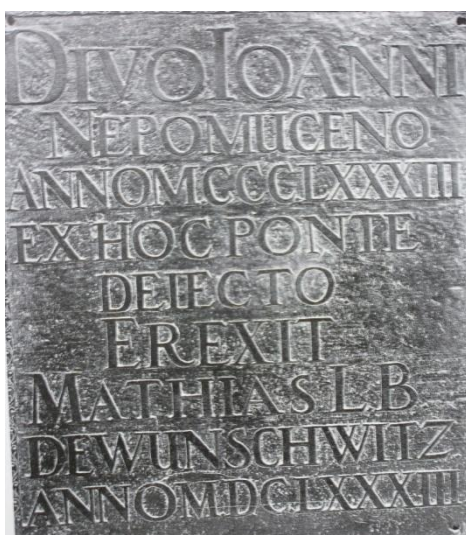 DIVO IOANNI
NEPOMUCENO
ANNO MCCCLXXXIII
EX HOC PONTE
DEIECTO
EREXIT
MATHIAS L.B
DE WUNSCHWITZ
ANNO M.DC.LXXXIII